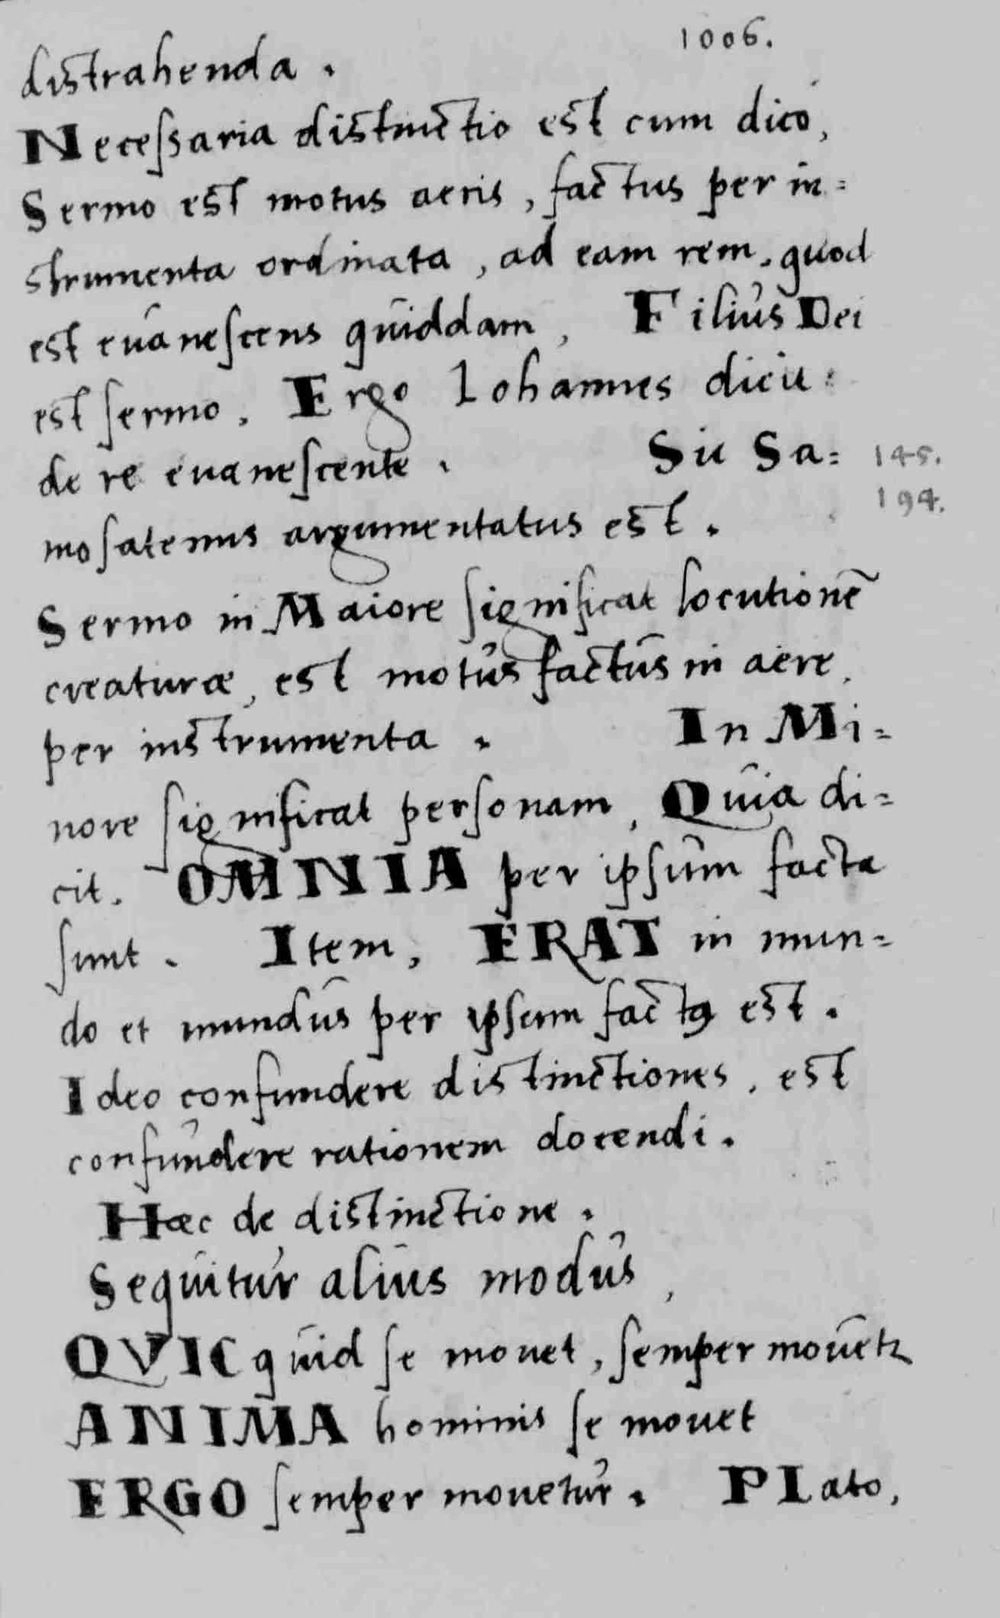 1006.
distrahenda .
Necessaria distinctio est cum dico,
Sermo est motus aeris, factus per in=
strumenta ordinata, ad eam rem, quod
est evanescens quiddam, Filius Dei
est sermo. Ergo Iohannes dicit
de re evanescente. Sic Sa= 145.
mosatenus argumentatus est. 194.
Sermo in Maiore significat locutionē
creaturæ, est motus factus in aere,
per instrumenta. In Mi=
nore significat personam, Quia di=
cit. OMNIA per ipsum facta
sunt. Item, ERAT in mun=
do et mundus per ipsum factꝰ est.
Ideo confundere distinctiones, est
confundere rationem docendi.
Hæc de distinctione.
Sequitur alius modus,
QVICquid se mouet, semper mouetr
ANIMA hominis se mouet
ERGO semper mouetur. PLato,